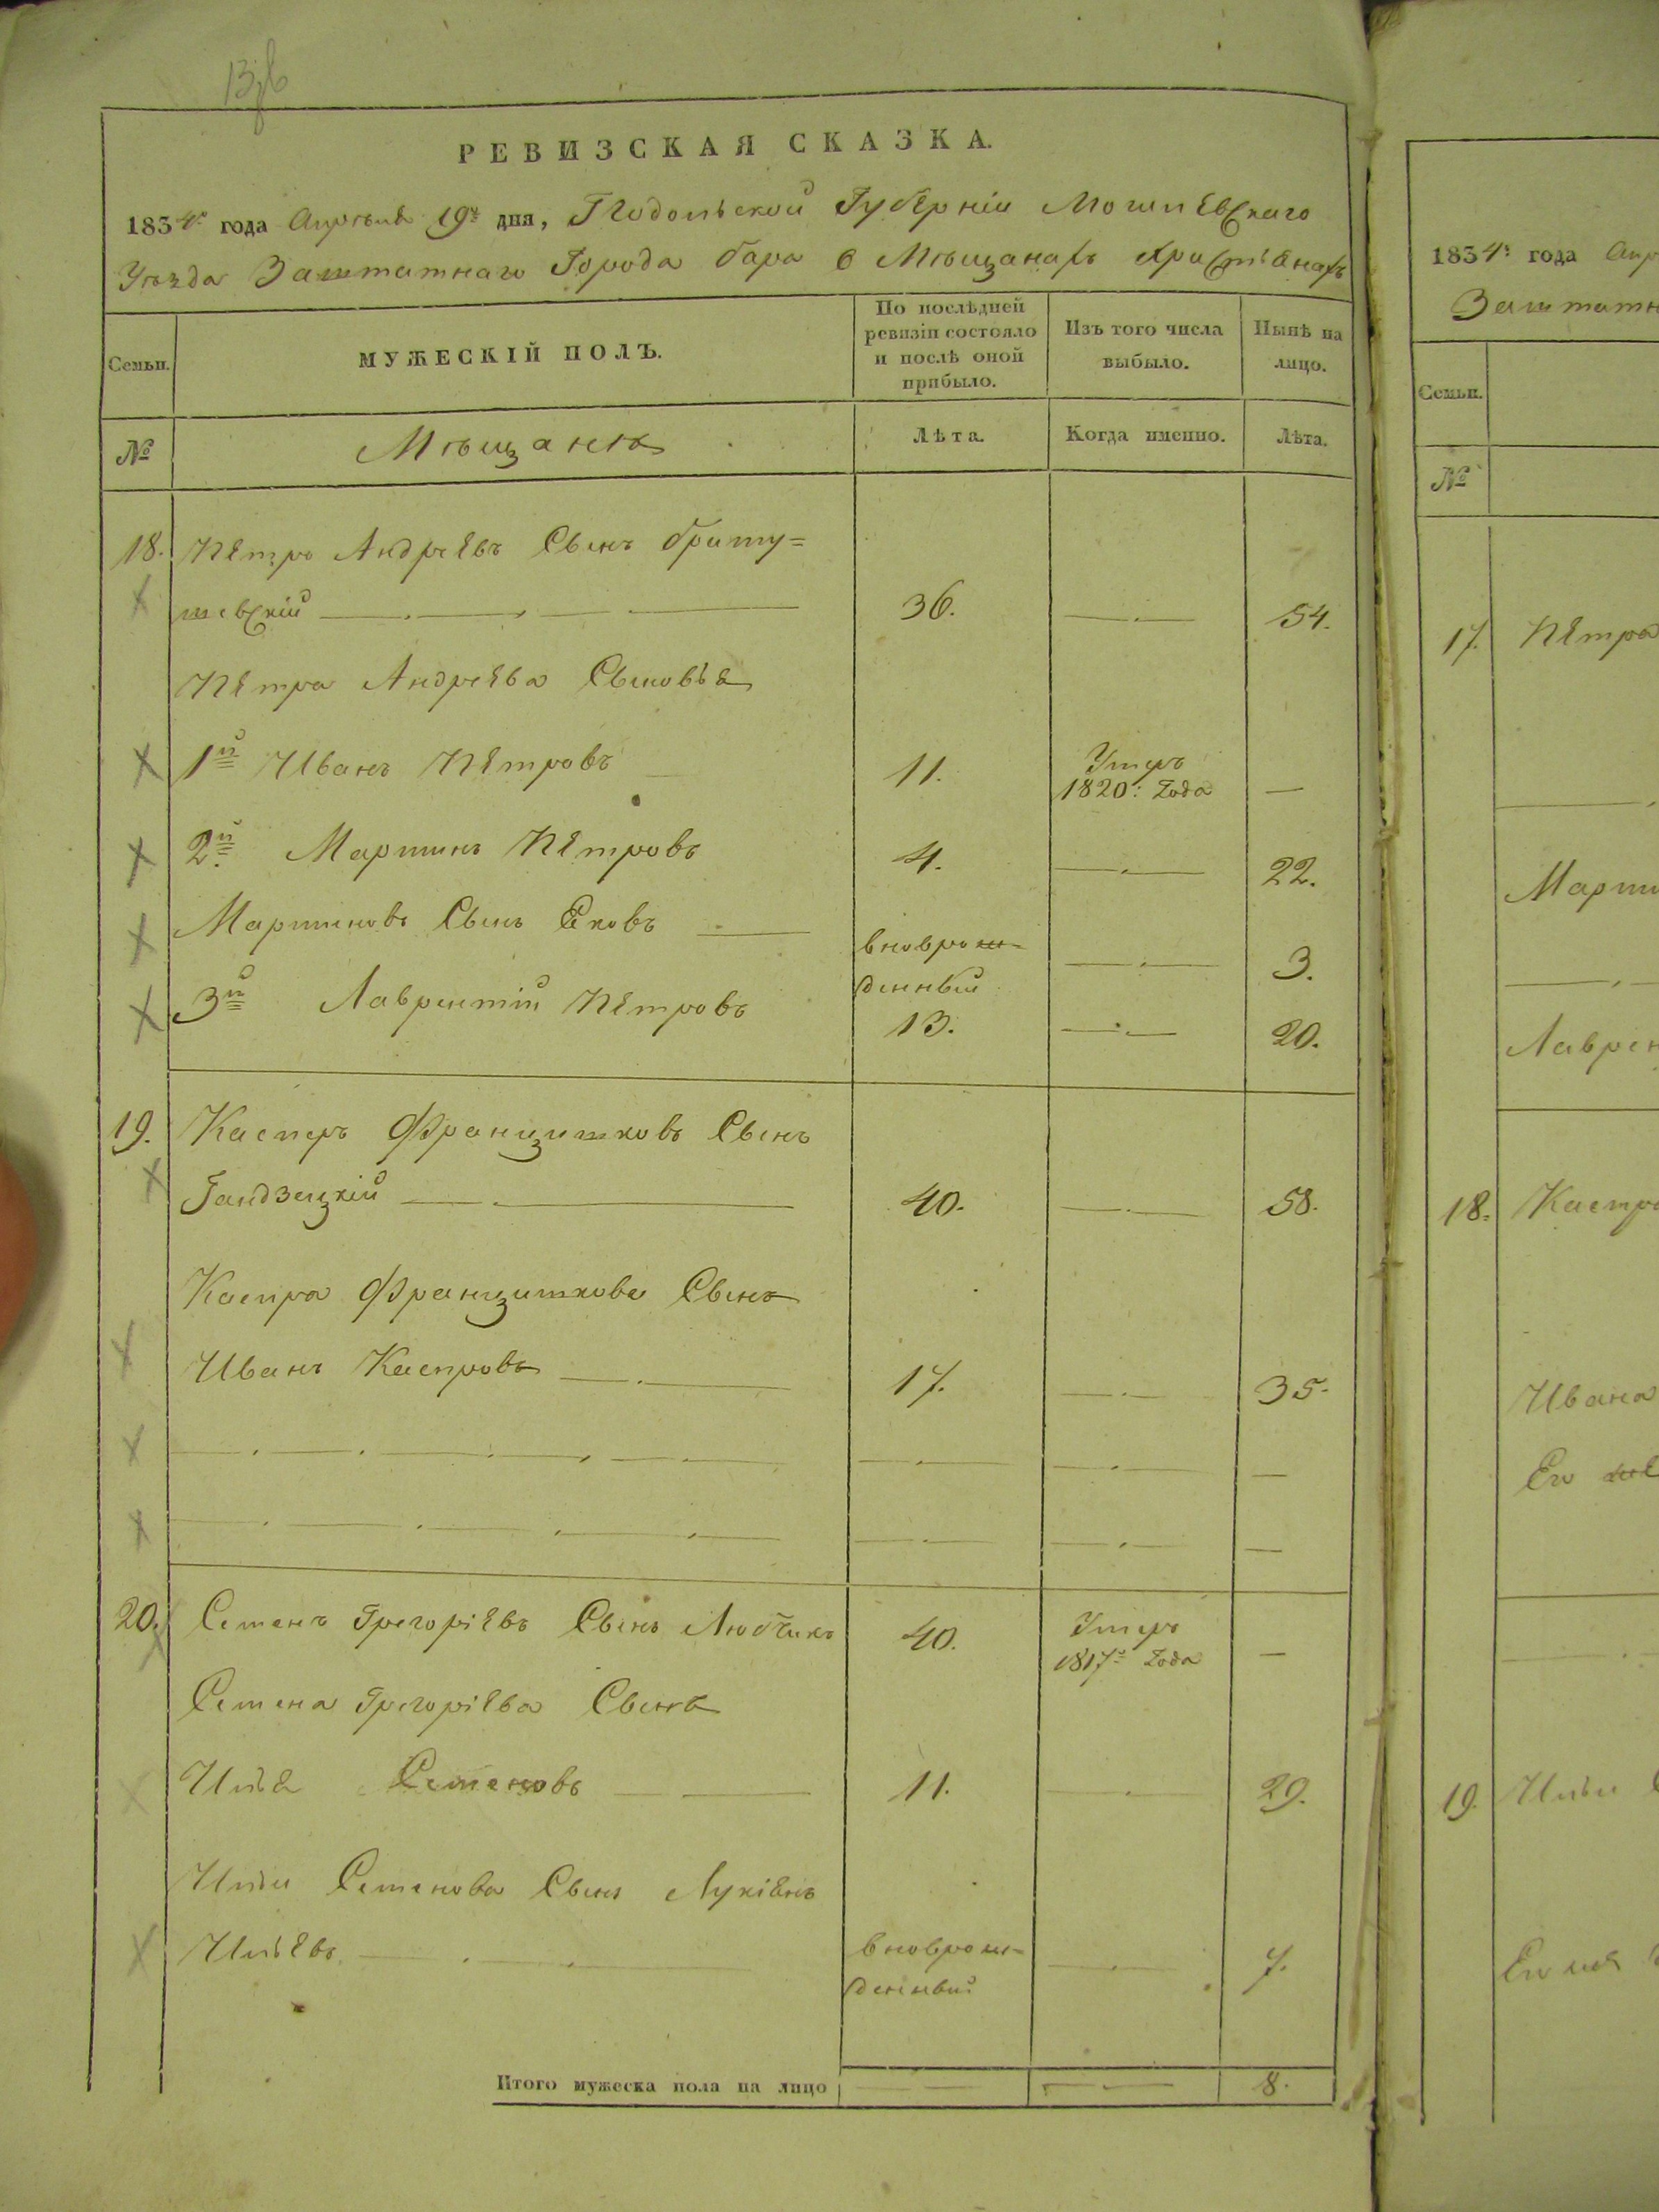 РЕВИЗСКАЯ СКАЗКА.
1834го года Апреля 19го дня, Подольской Губерніи Могилевскаго
Уѣзда Заштатнаго Города Бара о Мѣщанахъ Христіанахъ
Семьи.
МУЖЕСКІЙ ПОЛЪ.
По послѣдней ревизіи состояло и послѣ оной прибыло.
Изъ того числа выбыло.
Нынѣ на лицо.
№
Мѣщане
Лѣта.
Когда именно.
Лѣта.
18. Петро Андреевъ Сынъ Бриту=
шевскій 36. 54.
Петра Андреева Сыновья
1й Иванъ Петровъ 11. Умеръ 1820: года —
2й Мартинъ Петровъ 4. 22.
Мартиновъ Сынъ вноврож=
денный 3.
3й Лаврентій Петровъ 13. 20.
19. Касперъ Францишковъ Сынъ
Гандзецкій 40. 58.
Каспра Францишкова Сынъ
Иванъ Каспровъ 17. 35.
20. Семенъ Грегоріевъ Сынъ Любчикъ 40. Умеръ 1817го года —
Семена Грегоріева Сынъ
Илья Семеновъ 11. 29.
Ильи Семенова Сынъ Лукіянъ
Ильевъ вноврож=
денный 7.
Итого мужеска пола на лицо 8.
1834: года
Семьи.
№
17. Петра
18.
Ивана
Его
19. Ильи